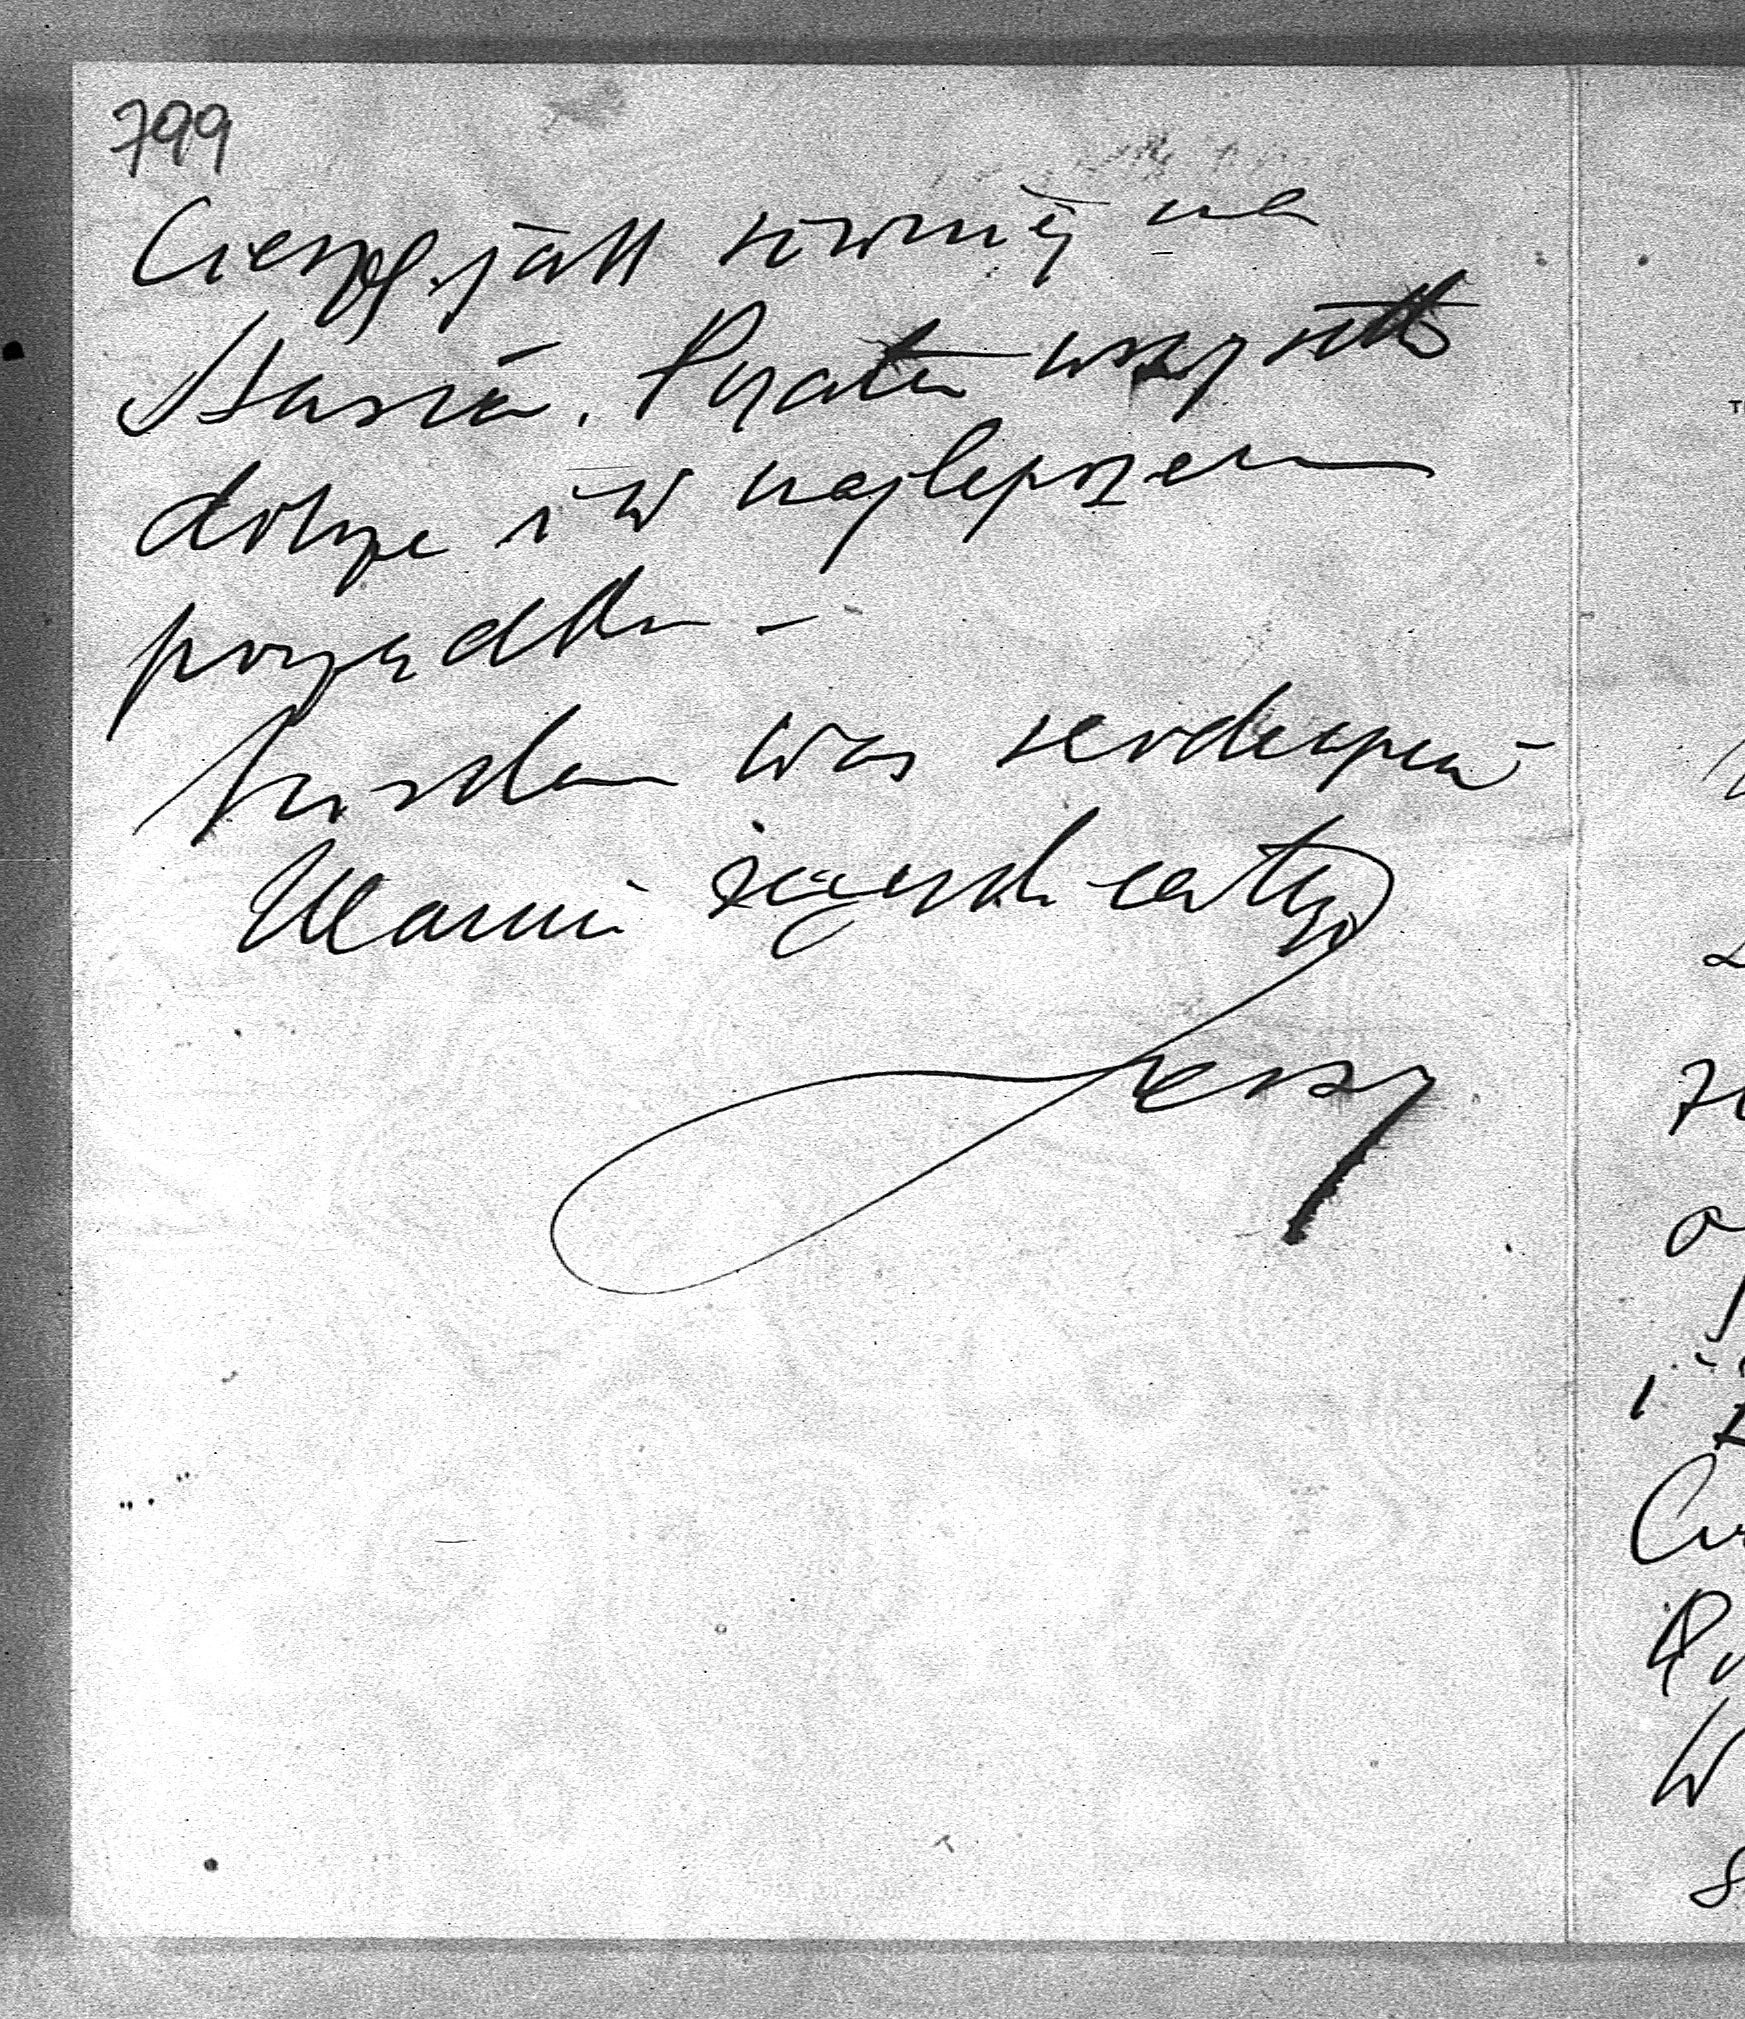 799
Ciebie, jak również na
Stasia. Poza tem wszystko
dobrze i w najlepszem
porządku —
Ściskam Was serdecznie
Mamie rączki całuję
Jerzy